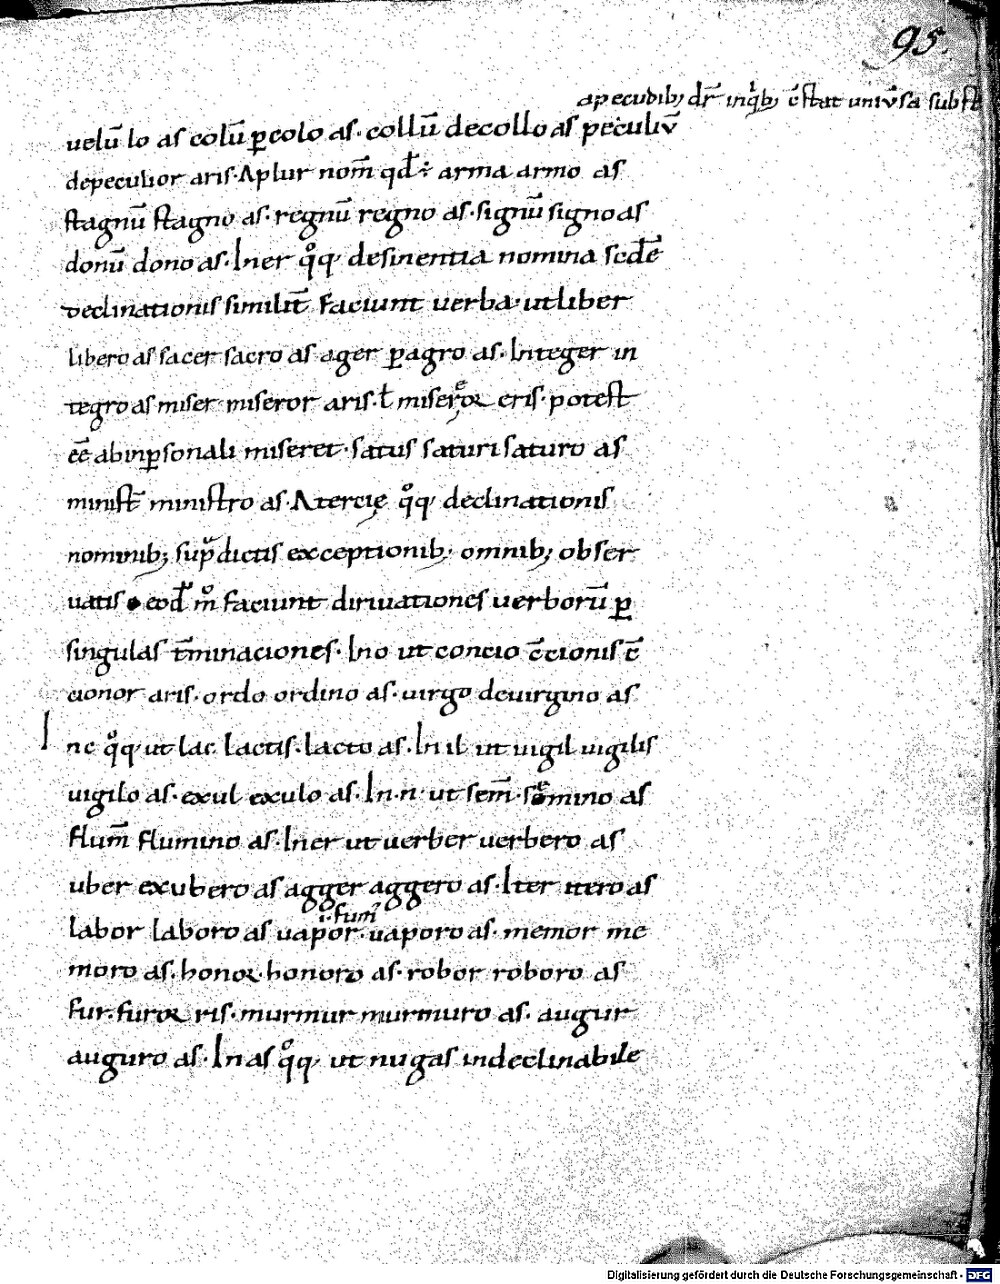 95.
apecudib; dr̄ inq̇b; c̄stat univ̄sa subst
uelū lo as colū ꝑcolo as. collū decollo as peculiū
depeculior aris. Aplur nom̄ qd̄ ÷ arma armo as
stagnū stagno as. regnū regno as. signū signo as
donū dono as. In er qͦq; desinentia nomina scdȩ̄
declinationis similit̄ faciunt uerba. ut liber
libero as sacer sacro as ager ꝑagro as. Integer in
tegro as miser miseror aris. ł miserͤor eris. potest
eē ab inꝑsonali miseret. satus saturi saturo as
minist̄ ministro as. A tercię qͦq; declinationis
nominib; sup̄dictis exceptionib; omnib; obser
uatis eod̄ mͦ faciunt diriuationes uerborū ꝑ
singulas t̄minaciones. In o ut concio c̄cionis c̄
cionor aris. ordo ordino as. uirgo deuirgino as
In c qͦq; ut lac lactis. lacto as. In il ut uigil uigilis
uigilo as. exul exulo as. In .n. ut sem̄. semino as
flum̄ flumino as. In er ut uerber uerbero as
uber exubero as agger aggero as. Iter itero as
.i. fum̄
labor laboro as uapor. uaporo as. memor me
moro as. honor. honoro as. robor roboro as
fur. furor ris. murmur murmuro as. augur
auguro as. In as qͦq; ut nugas indeclinabile
Digitalisierung gefördert durch die Deutsche Forschungsgemeinschaft - DFG